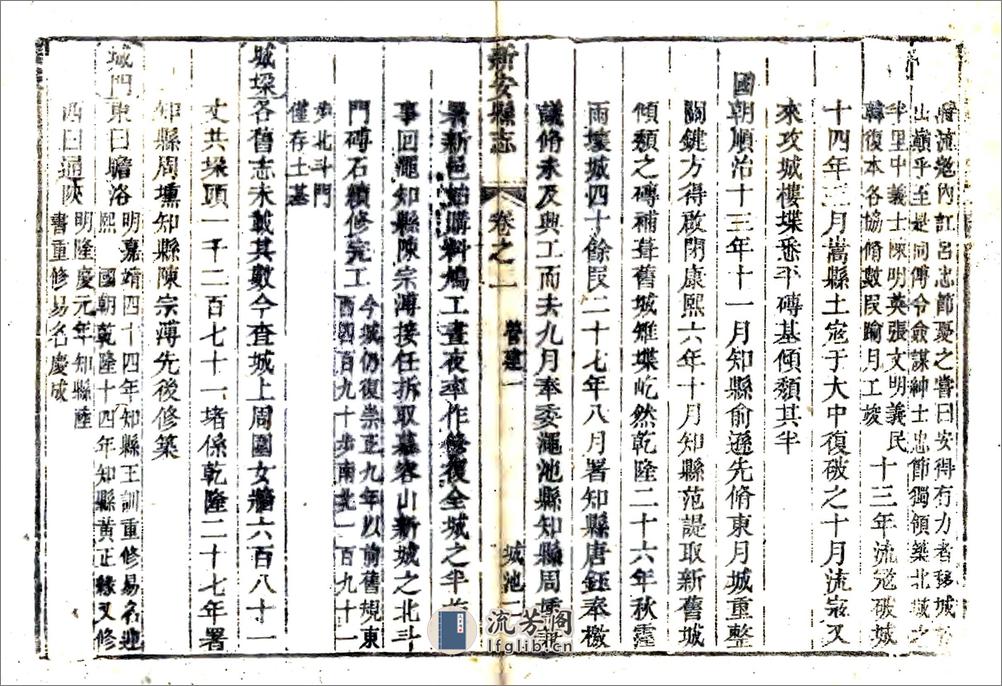 潛流寇內訌呂忠節憂之嘗曰安得有力者移城於
山巔乎至是同傅令僉謀紳士忠節獨領築北城之
半里中義士陳明英張文明義民
韓復本各協脩數叚踰月工竣
十三年流寇破城
十四年三月嵩縣土寇于大中復破之十月流寇又
來攻城樓堞悉平磚基傾頹其半
國朝順治十三年十一月知縣俞遜先脩東月城重整
關鍵方得啟閉康熙六年十月知縣范諟取新舊城
傾頹之磚補葺舊城雉堞屹然乾隆二十六年秋霪
雨壞城四十餘叚二十七年八月署知縣唐鈺奉檄
議脩未及興工而夫九月奉委澠池縣知縣周
署新邑始購料鳩工晝夜率作修復全城之半
事回澠知縣陳宗溥接任拆取慕容山新城之北斗
門磚石續修完工
今城仍復崇正九年以前舊規東
西四百九十步南北一百九十一
步北斗門
僅存土基
新安縣志
卷之二
營建一
城池二
城垜各舊志未載其數今查城上周圍女牆六百八十一
丈共垜頭一千二百七十一堵係乾隆二十七年署
知縣周壎知縣陳宗溥先後修築
城門東曰瞻洛
明嘉靖四十四年知縣王訓重修易名迎
熙國朝乾隆十四年知縣黃正緣又修
西曰通陝
明隆慶元年知縣陸
書重修易名慶成
流芳阁
lfglib.cn